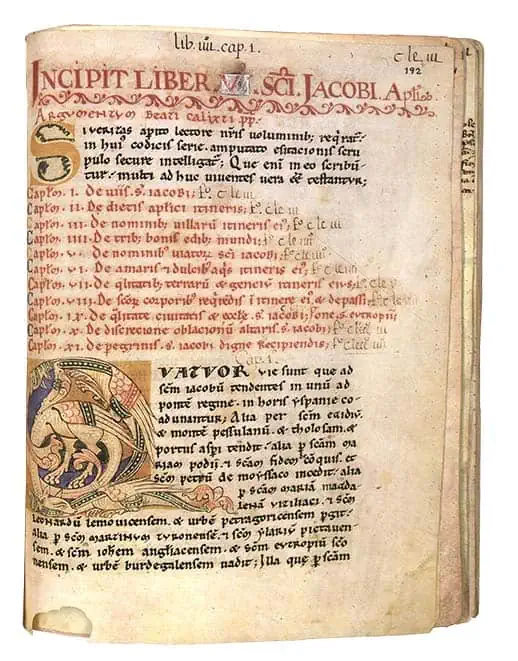 lib. IIII. cap. 1.
c le III
192
INCIPIT LIBER SCI. IACOBI. Apli.
Argumentum Beati calixti pp.
SI veritas apito lectore nris voluminib; reqrat.
in hui codicis serie. amputato esitacionis scru
pulo secure intelligat; Que eni in eo scribu
tur. multi ad huc viventes vera eē testantur;
Capłm. I. De viis. s. iacobi;
Capłm. II. De dietis aplici itineris;
Capłm. III. De nominib; villarū itineris ei;
Capłm. IIII. De trib; bonis edib; mundi;
Capłm. V. De nominib; viator sci iacobi;
Capłm. VI. De amaris & dulcib; aqs itineris ei;
Capłm. VII. De qlitatib; terrarū & gentiū itineris eius;
Capłm. VIII. De scor corporib; reqrēdis ī itinere ei & de passi
Capłm. IX. De qlitate civitatis & eccle. s. iacobi;
Capłm. X. De discrecione oblacionū altaris. s. iacobi;
Capłm. XI. De pegrinis. s. iacobi digne recipiendis;
Cap. 1.
QUATUOR vie sunt que ad
scm iacobū tendentes in unū ad
pontē regine. in horis yspanie co
adunantur; Alia per scm egidiū.
& montē pessulanū. & tholosam. &
portus aspi tendit. alia p scam ma
riam podii. & scam fidem & cōquis. et
scm petrū de moyssaco incedit. alia
p scam mariā magda
lenā viziliaci. & scm
leonardū lemovicensem. & urbē petragoricensem pgit.
alia p scm martinum turonensē. & scm ylariū pictaven
sem. & scm iohem angliacensem. & scm eutropiū sco
nensem. & urbē burdegalensem vadit; Illa que p scam